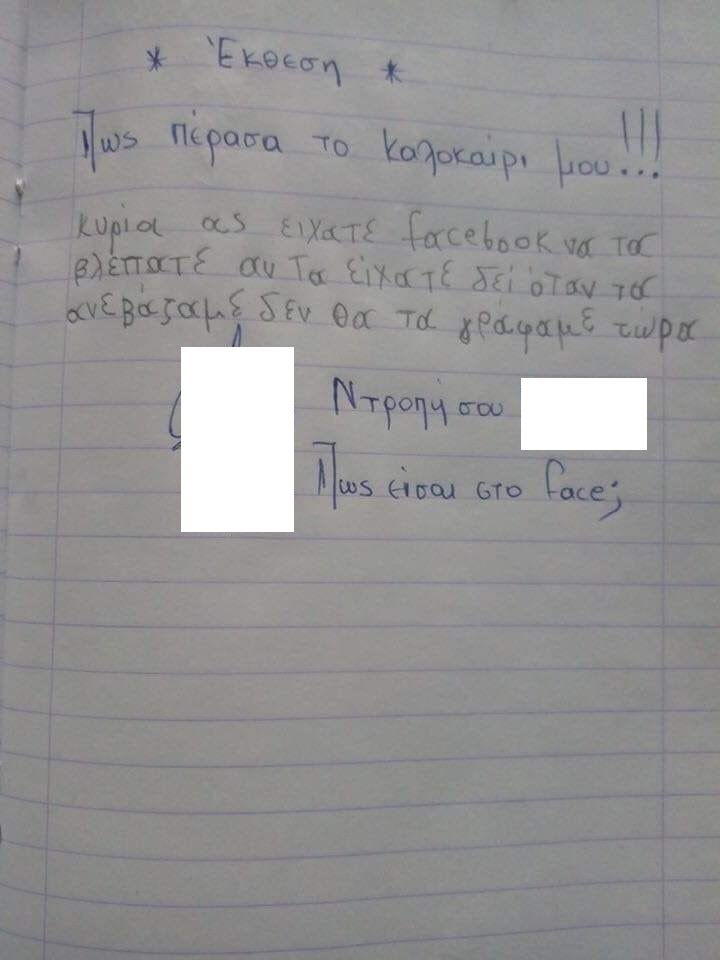 * Έκθεση *
Πως πέρασα το καλοκαίρι μου!!!
κυρία ας ειχατε facebook να τα
βλέπατε αν τα είχατε δει όταν τα
ανεβάζαμε δεν θα τα γράφαμε τώρα
Ντροπή σου
Πως είσαι στο face;